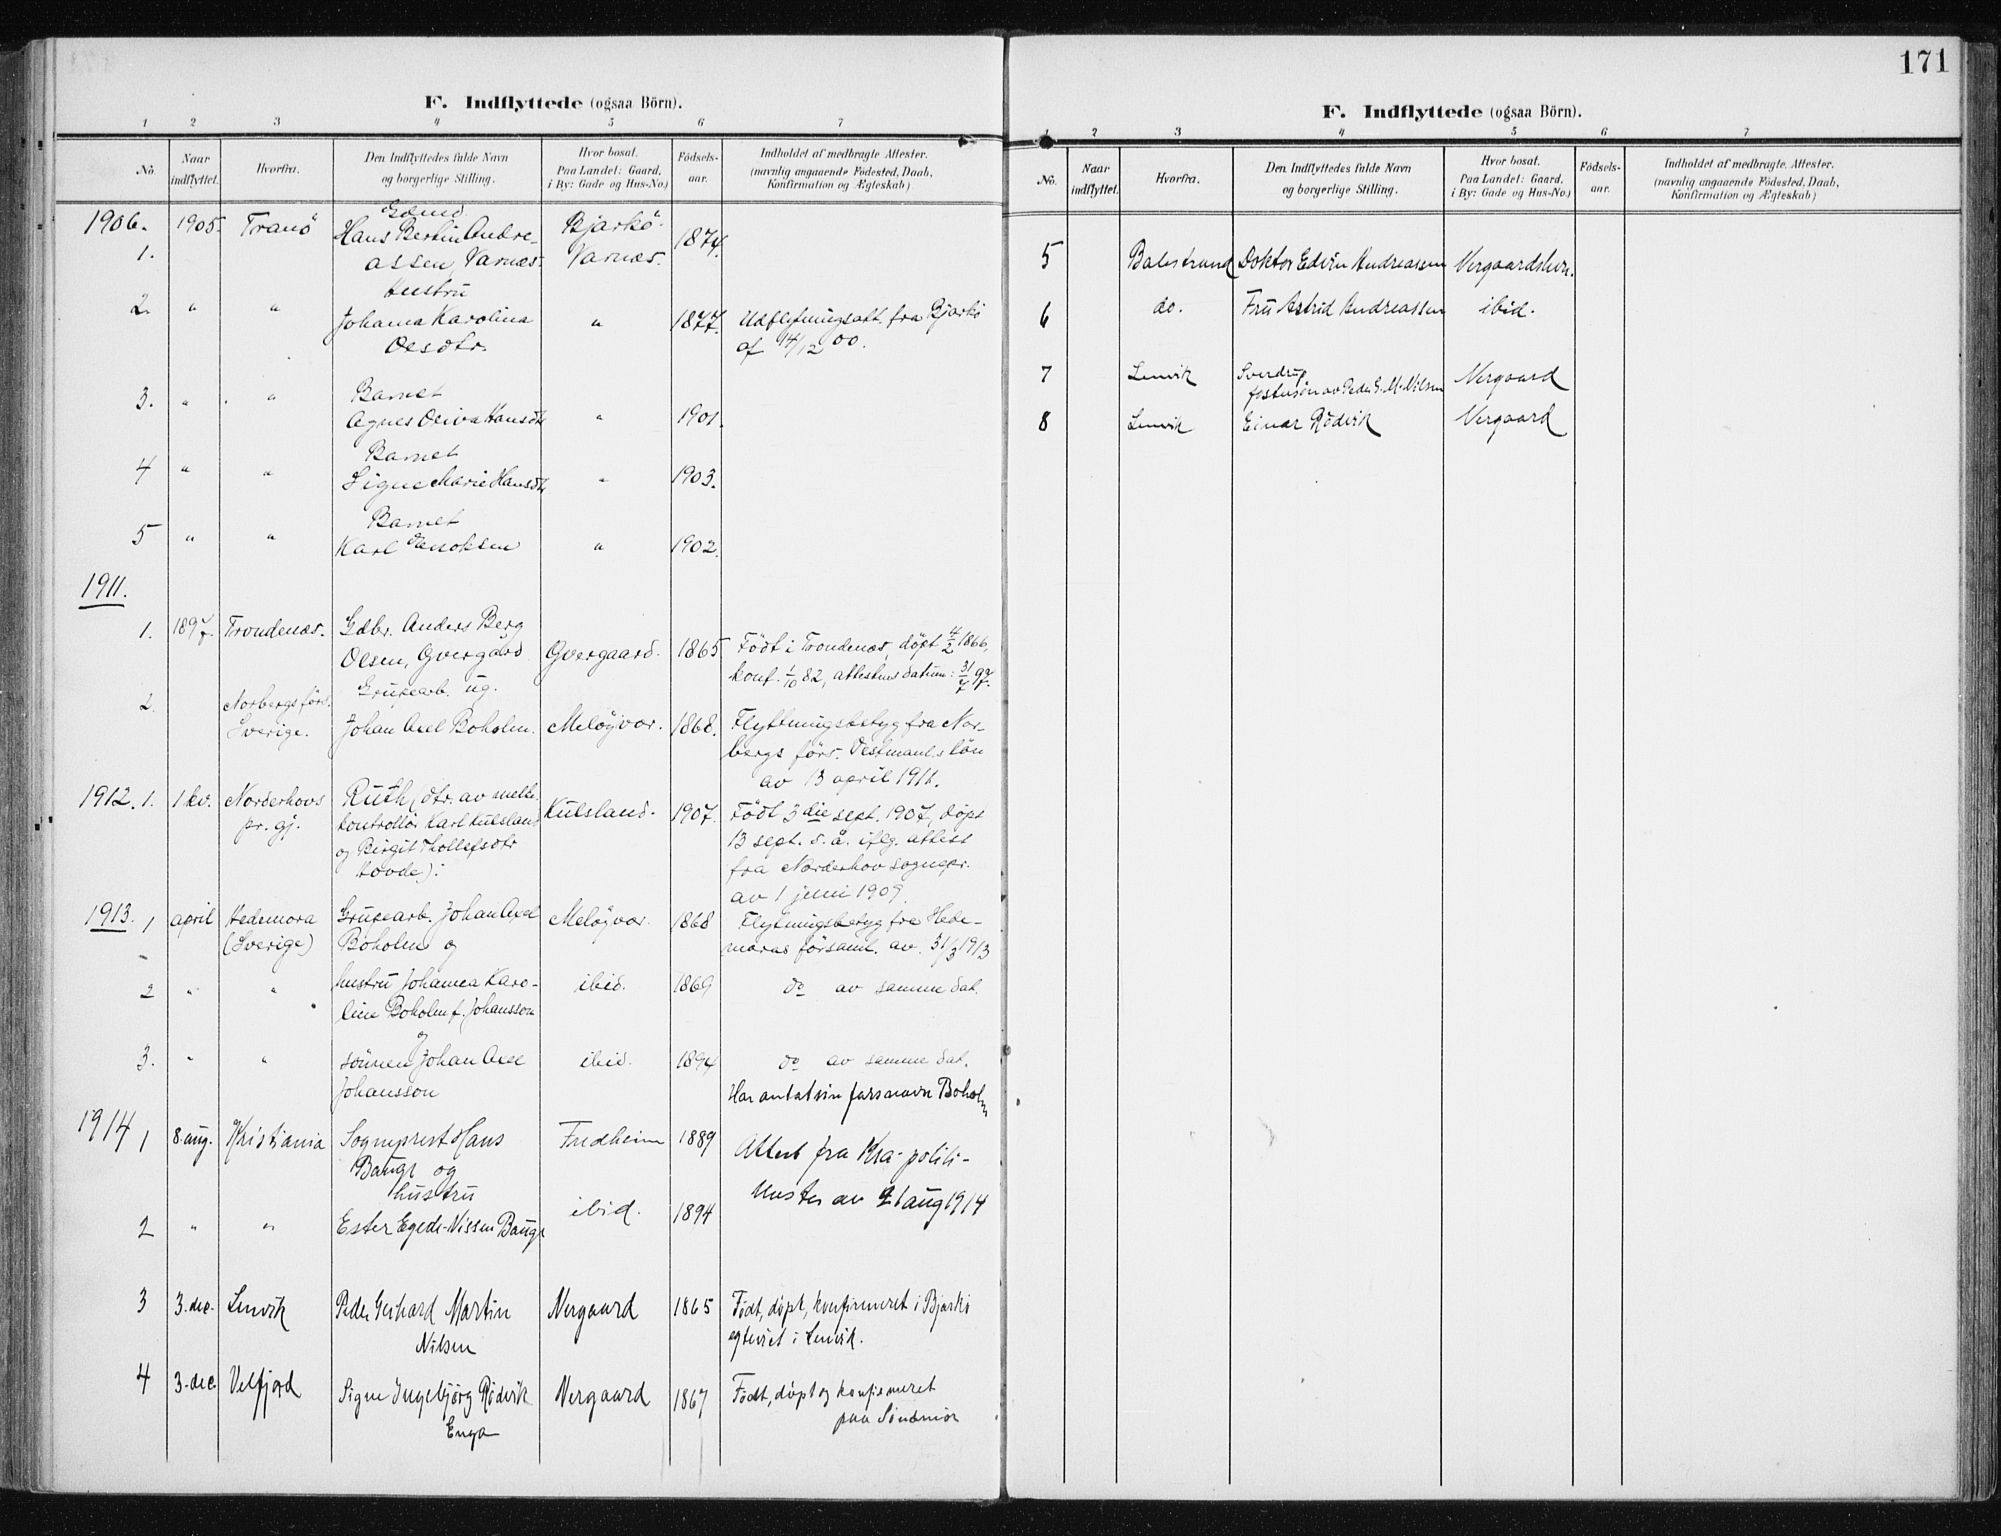 F. Indflyttede (ogsaa Börn).
1 2 3 4 5 6 7
No. Naar indflyttet. Hvorfra. Den Indflyttedes fulde Navn og borgerlige Stilling. Hvor bosat. Paa Landet: Gaard, i By: Gade og Hus-No.) Fødsels-aar. Indholdet af medbragte Attester. (navnlig angaaende Födested, Daab, Konfirmation og Ægteskab)
1906.
1. 1905. Tranö
Hans Bertin Andre-
assen, Varnæs.
Bjarkö
Varnæs. 1874.
hustru
2. " " Johanna Karolina
Olsdtr.
" 1877. Udflytningsatt. fra Bjarkö
af 14/12 00.
Barnet
3. " " Agnes Oliva Hansdtr " 1901.
Barnet
4 " " Signe Marie Hansdtr " 1903.
Barnet
5 " " Karl " 1902.
1911.
1. 1897. Trondenæs. Gdbr. Anders Berg
Olsen, Gvergård Gvergaard. 1865. Födt i Trondenæs, döpt 4/2 1866,
konf. 1/10 82, attestens datum: 31/7 97.
2. Norbergs förs.
Sverige.
Grubearb. ug.
Johan Axel Boholm. Meløyvær. 1868. Flyttningsbetyg fra Nor-
bergs förs. Vestmanl.s län
av 13 april 1911.
1912. 1. 1 kv. Norderhovs
pr. gj.
Ruth (dtr. av melke-
kontrollör Karl Kulsland
og Birgit Thollefsdtr
Hovde).
Kulsland. 1907. Födt 3die sept. 1907, döpt
13 sept. s. å. iflg. attest
fra Norderhov sognepr.
av 1 juni 1909.
1913. 1 april Hedemora
(Sverige)
Grubearb. Johan Axel
Boholm og
Meløyvær. 1868 Flytningsbetyg fra Hede-
moras församl. av. 31/3 1913
2 " " hustru Johanna Karo-
line Boholm f. Johansson
og
ibid. 1869 do av samme dat.
3. " " sönnen Johan Axel
Johansson
ibid. 1894 do av samme dat.
Har antat sin fars navn Boholm
1914 1 8. aug. Kristiania Sogneprest Hans
Bauge og
hustru
Fredheim 1889 Attest fra Kra. politi-
av 21 aug 1914
2 " " Ester Egede-Nissen Bauge ibid. 1894
3 3. dec. Lenvik Peder Gerhard Martin
Nilsen
Nergaard 1865 Födt, döpt, konfirmeret i Bjarkö
egteviet i Lenvik.
4 3. dec. Velfjord Signe Ingebjörg Rödvik
Enga
Nergaard 1867 Födt, döpt og konfirmeret
paa Söndmör
171
F. Indflyttede (ogsaa Börn).
1 2 3 4 5 6 7
No. Naar indflyttet. Hvorfra. Den Indflyttedes fulde Navn og borgerlige Stilling. Hvor bosat. Paa Landet: Gaard, i By: Gade og Hus-No.) Födsels-aar. Indholdet af medbragte Attester. (navnlig angaaende Födested, Daab, Konfirmation og Ægteskab)
5 Balestrand Doktor Edvin Andreassen
6 do. Fru Astrid Andreassen ibid.
7 Lenvik Sverdrup
fostersön av Peder G. M. Nilsen Nergaard
8 Lenvik Einar Rödvik Nergaard